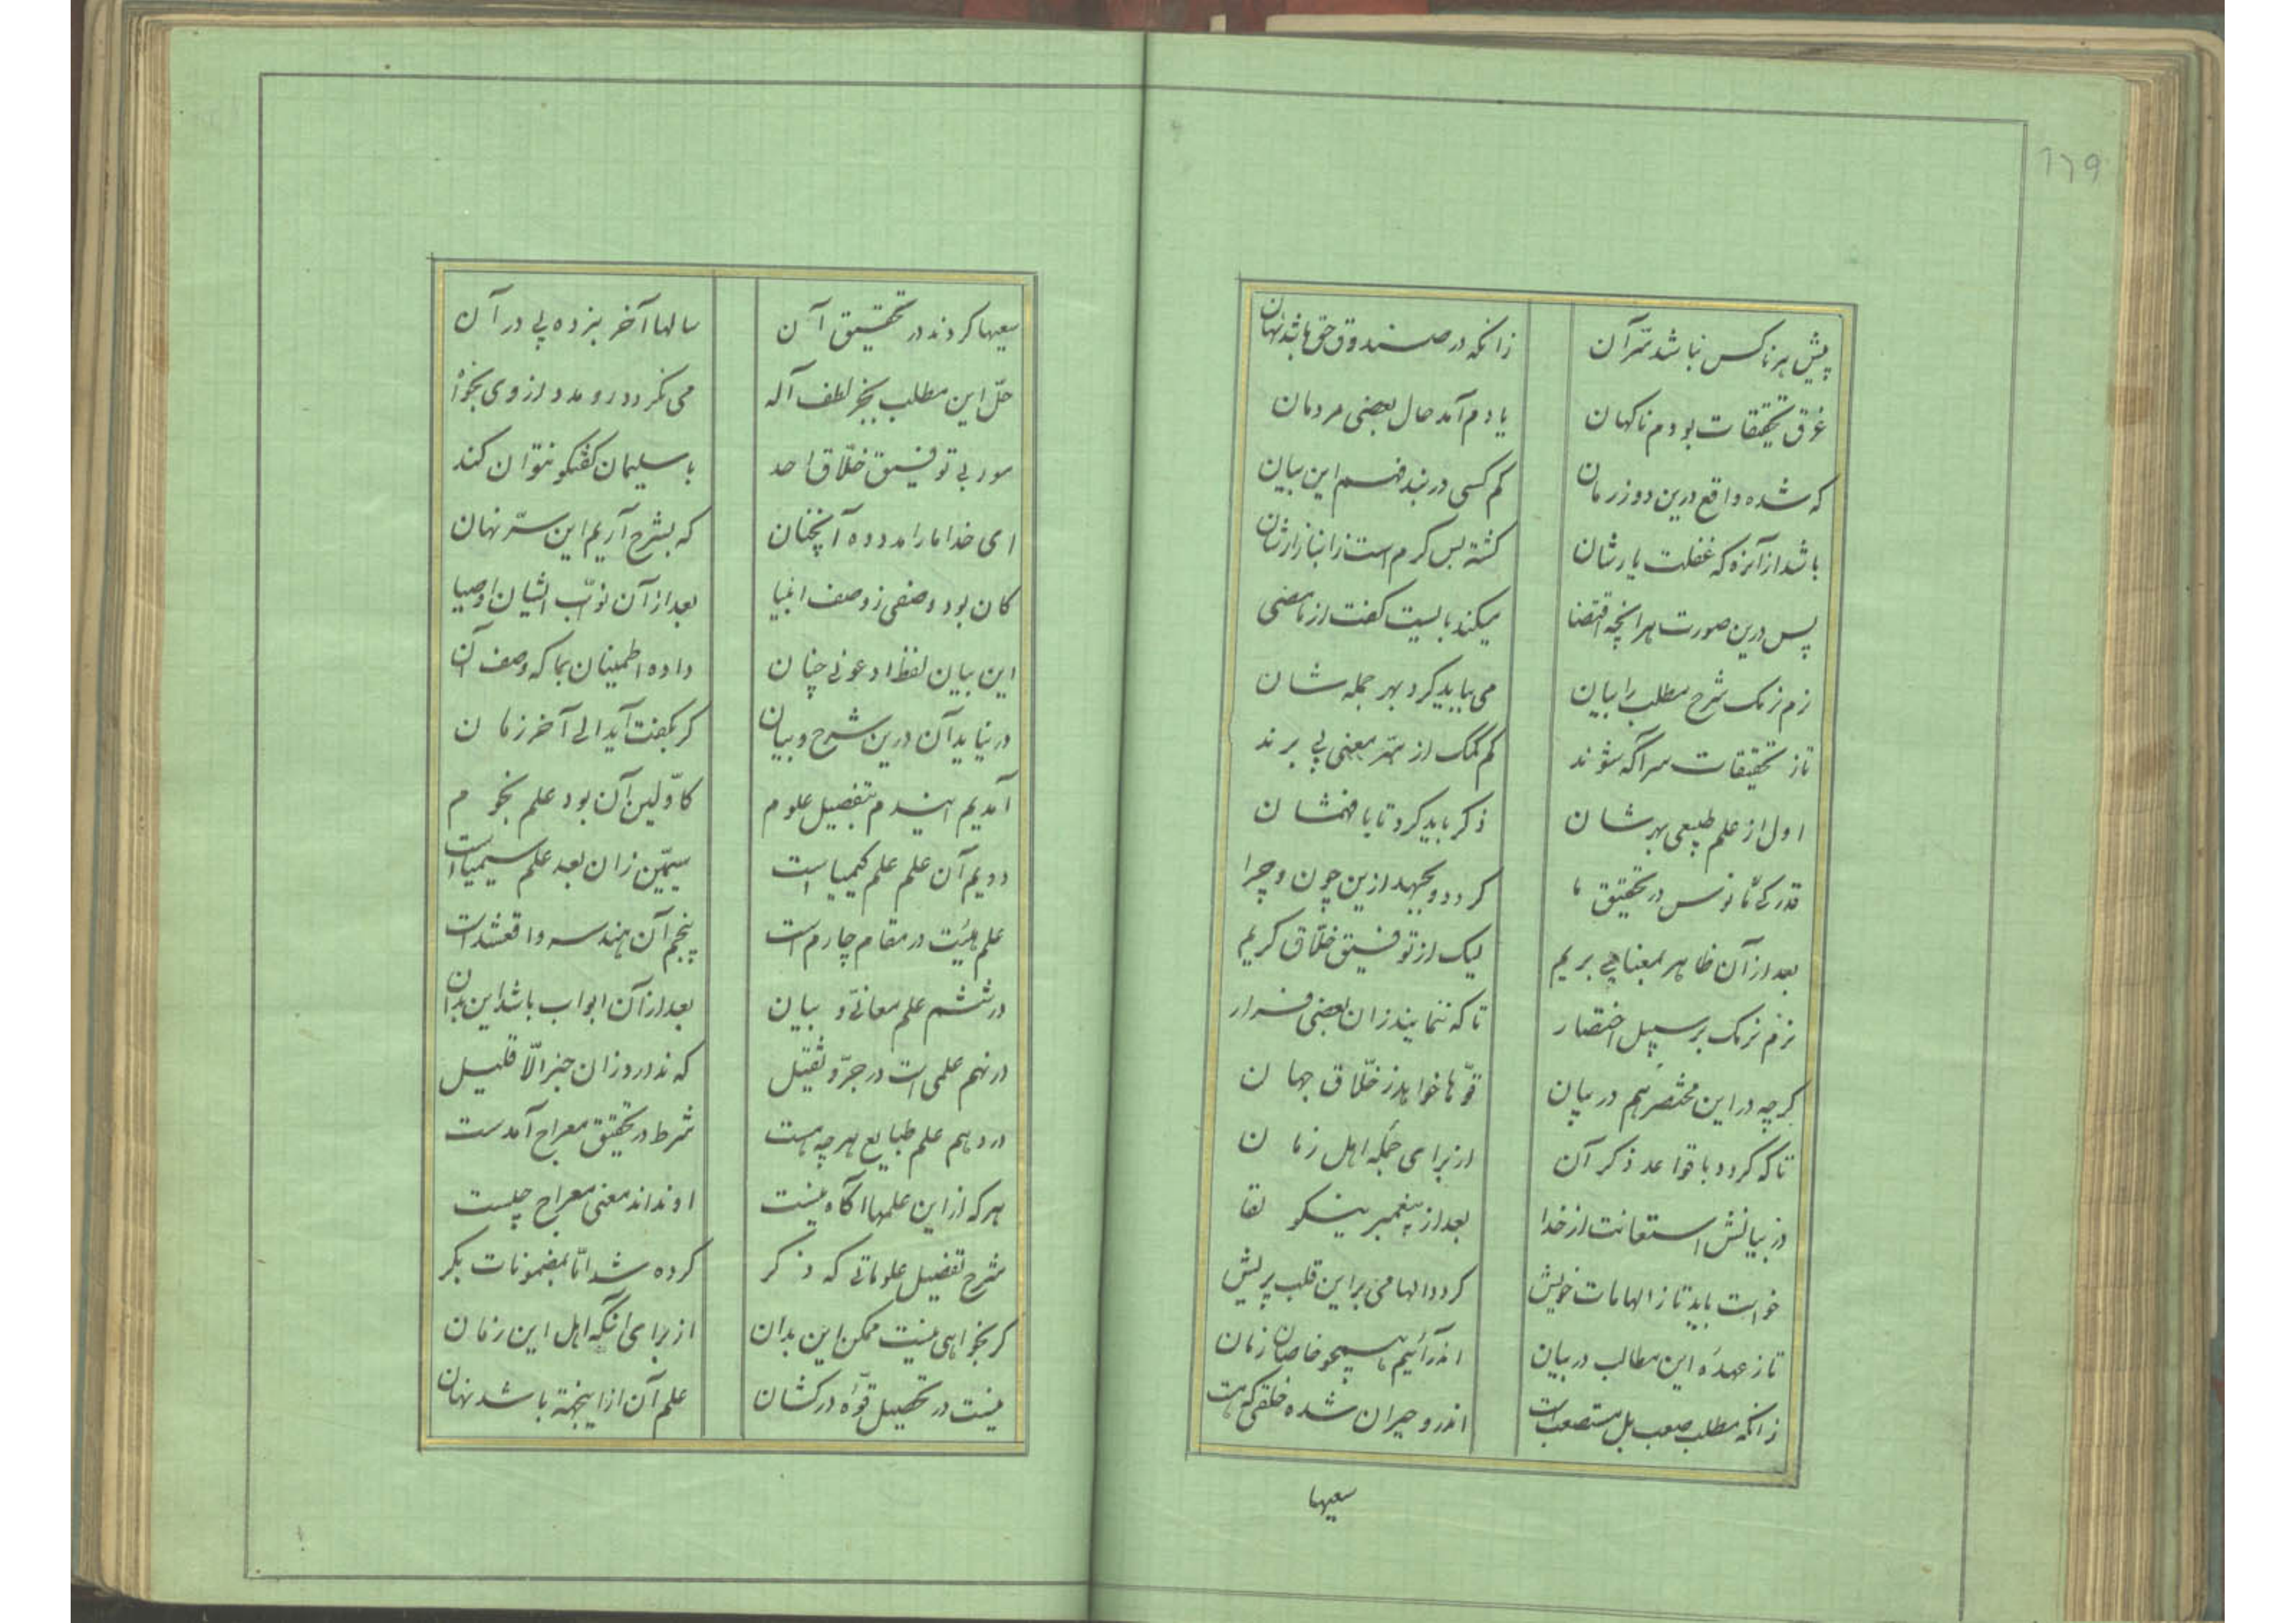 ١٢٩
پیش هر ناکس نباشد سّر آن زانکه در صندوق حق باشد نهان
غرق تحقیقات بودم ناکهان یادم آمد حال بعضی مردمان
که شده واقع درین دور زمان کم کسی در بند فهم این بیان
باشد از آنره که غفلت یارشان کشته بس کرم است زانبازارشان
پس درین صورت هر انچه اقتضا میکند بایست کفت از مامضی
نرم نرمک شرح مطلب را بیان می بباید کرد بهر جمله شان
تاز تحقیقات سر آکه شوند کم کمک از سّر معنی پی برند
اول از علم طبیعی بهرشان ذکر باید کرد تا با فهمشان
قدرکی مانوس در تحقیق ما کردد و بجهد ازین چون و چرا
بعد از آن ظاهر بمعنا پی بریم لیک از توفیق خلّاق کریم
نرم نرمک بر سبیل اختصار تا که ننمایند زان بعضی فرار
کرچه در این مختصر هم در بیان قوّها خواهد ز خلّاق جهان
تا که کردد با قواعد ذکر آن از برای جمله اهل زمان
در بیانش استعانت از خدا بعد از پیغمبر نیکو لقا
خواست باید تا ز الهامات خویش کردد الهامی بر این قلب پریش
تا ز عهدهٔ این مطالب در بیان اندر آئیم همچو خاصان زمان
زانکه مطلب صعب بل مستصعب است اندرو حیران شده خلقی که هست
سعیها
سعیها کردند در تحقیق آن سالها آخر نبرده پی در آن
حلّ این مطلب بجز لطف آله می نکردد رو مدد از وی بخواه
مور بی توفیق خلّاق احد با سلیمان کفتکو نتوان کند
ای خدا ما را مدد ده آنچنان که بشرح آریم این سّر نهان
کان بود وصفی ز وصف انبیا بعد از آن نوّاب ایشان اوصیا
این بیان لفظ ادعونی چنان داده اطمینان بما که وصف آن
در نیاید آن درین شرح و بیان کر بکفت آید الی آخر زمان
آمدیم ایندم بتفصیل علوم کاوّلین آن بود علم نجوم
دویم آن علم علم کیمیاست سیمّین زان بعد علم سیمیاست
علم هیئت در مقام چارم است پنجم آن هندسه واقعشداست
در ششم علم معانی و بیان بعد از آن ابواب باشد این بدان
در نهم علمی است در جرّ و ثقیل که ندارد زان خبر الّا قلیل
در دهم علم طبایع هر چه هست شرط در تحقیق معراج آمدست
هر که از این علمها آگاه نیست او نداند معنی معراج چیست
شرح تفصیل علوماتی که ذکر کرده شد امّا بمضمونات بکر
کر بخواهی نیست ممکن این بدان از برای آنکه اهل این زمان
نیست در تحصیل قوّهٔ درکشان علم آن از اینجهة باشد نهان